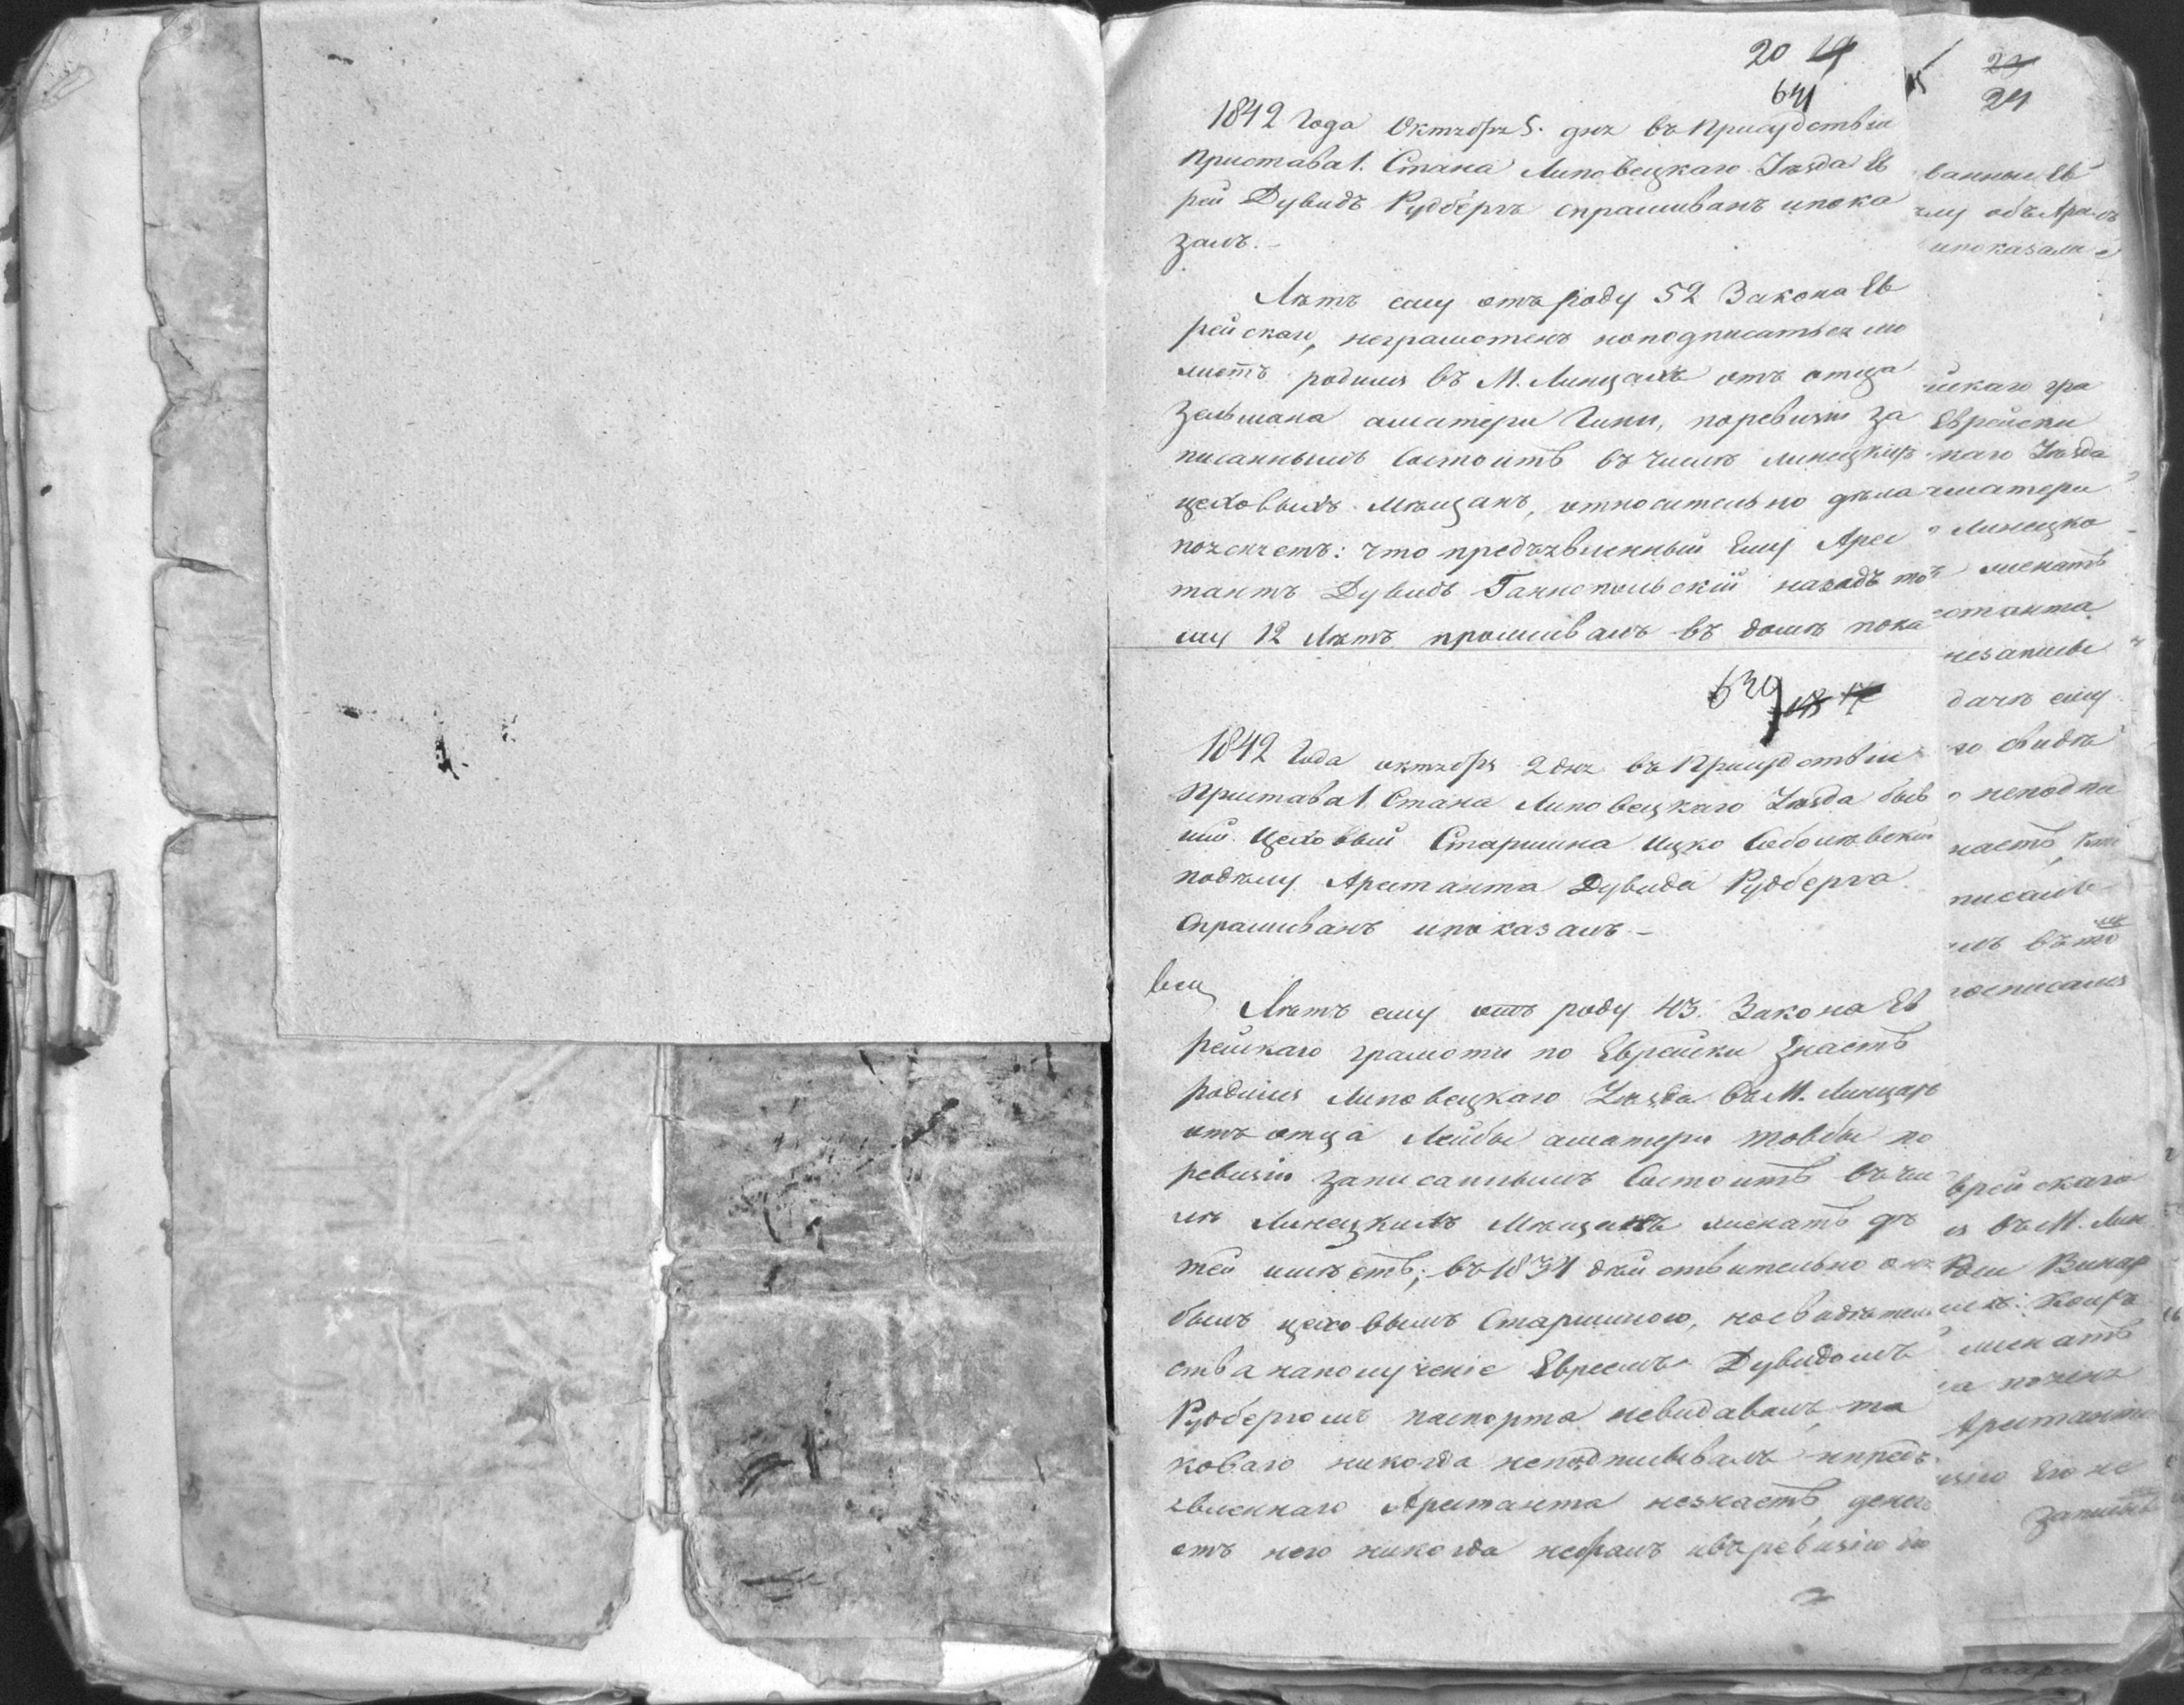 20 19
641
1842 Года Октября 5. дня въ Присудствіи
Пристава 1. Стана Липовецкаго Уѣзда Ев
рей Дувидъ Рудбергъ спрашиванъ и пока
залъ. –
Лѣтъ ему отъ роду 52 Закона Ев
рейскаго, неграмотенъ но подписаться
родился въ М. Линцахъ отъ отца
Зельмана а матери Гини, по ревизіи за
писаннымъ Состоитъ въ числѣ Линецкихъ
цеховыхъ Мѣщанъ, относительно дѣла
поясняетъ: что предъявленный Ему Арес
тантъ Дувидъ Гайнопольскій назадъ то
му 12 Лѣтъ проживалъ въ домѣ пока
639
18 17
1842 Года октября 2 дня въ Присудствіи
Пристава 1. Стана Липовецкаго Уѣзда быв
шій Цеховый Старшина Ицко Соболѣвскій
по дѣлу Арестанта Дувида Рудберга
Спрашиванъ и показалъ –
Лѣтъ ему отъ роду 43. Закона Ев
рейскаго грамоти по Еврейски знаетъ
родился Липовецкаго Уѣзда въ М. Линцахъ
отъ отца Лейбы а матери Товбы по
ревизіи записаннымъ Состоитъ въ чи
слѣ Линецкихъ Мѣщанъ дѣ
тей имѣетъ; въ 1834 дѣйствительно онъ
былъ цеховымъ Старшиною, но свидѣтель
ства на полученіе Евреемъ Дувидомъ
Рудбергомъ паспорта невидавалъ, та
коваго никогда неподписывалъ и предъ
явленнаго Арестанта незнаетъ, денегъ
отъ него никогда небралъ и въ ревизію Ею
23
24
ванные Ев
и показали
скаго гра
Еврейски
каго Уѣзда
а матери
Линецко
станта
дачѣ ему
го свидѣ
о неподпи
наетъ, кто
писалъ
врейскаго
въ М. Лин
Арестанта
его не